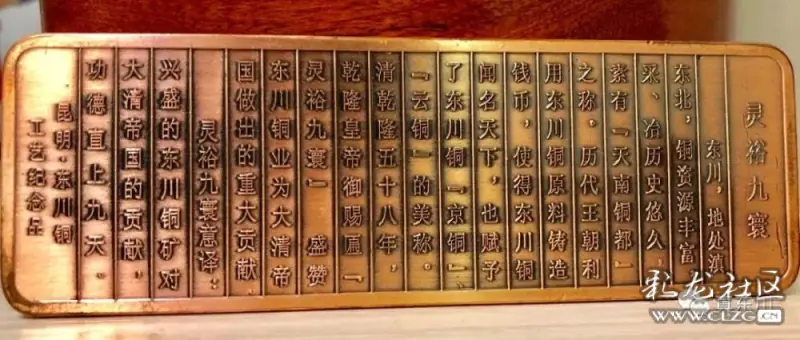 灵裕九寰
东川，地处滇
东北，铜资源丰富
采、冶历史悠久，
素有『天南铜都』
之称，历代王朝利
用东川铜原料铸造
钱币，使得东川铜
闻名天下，也赋予
了东川铜『京铜』、
『云铜』的美称。
清乾隆五十八年，
乾隆皇帝御赐匾『
灵裕九寰』 盛赞
东川铜业为大清帝
国做出的重大贡献。
灵裕九寰意译：
兴盛的东川铜矿对
大清帝国的贡献，
功德直上九天。
昆明·东川铜
工艺纪念品
彩龙社区
WWW.CLZG.CN